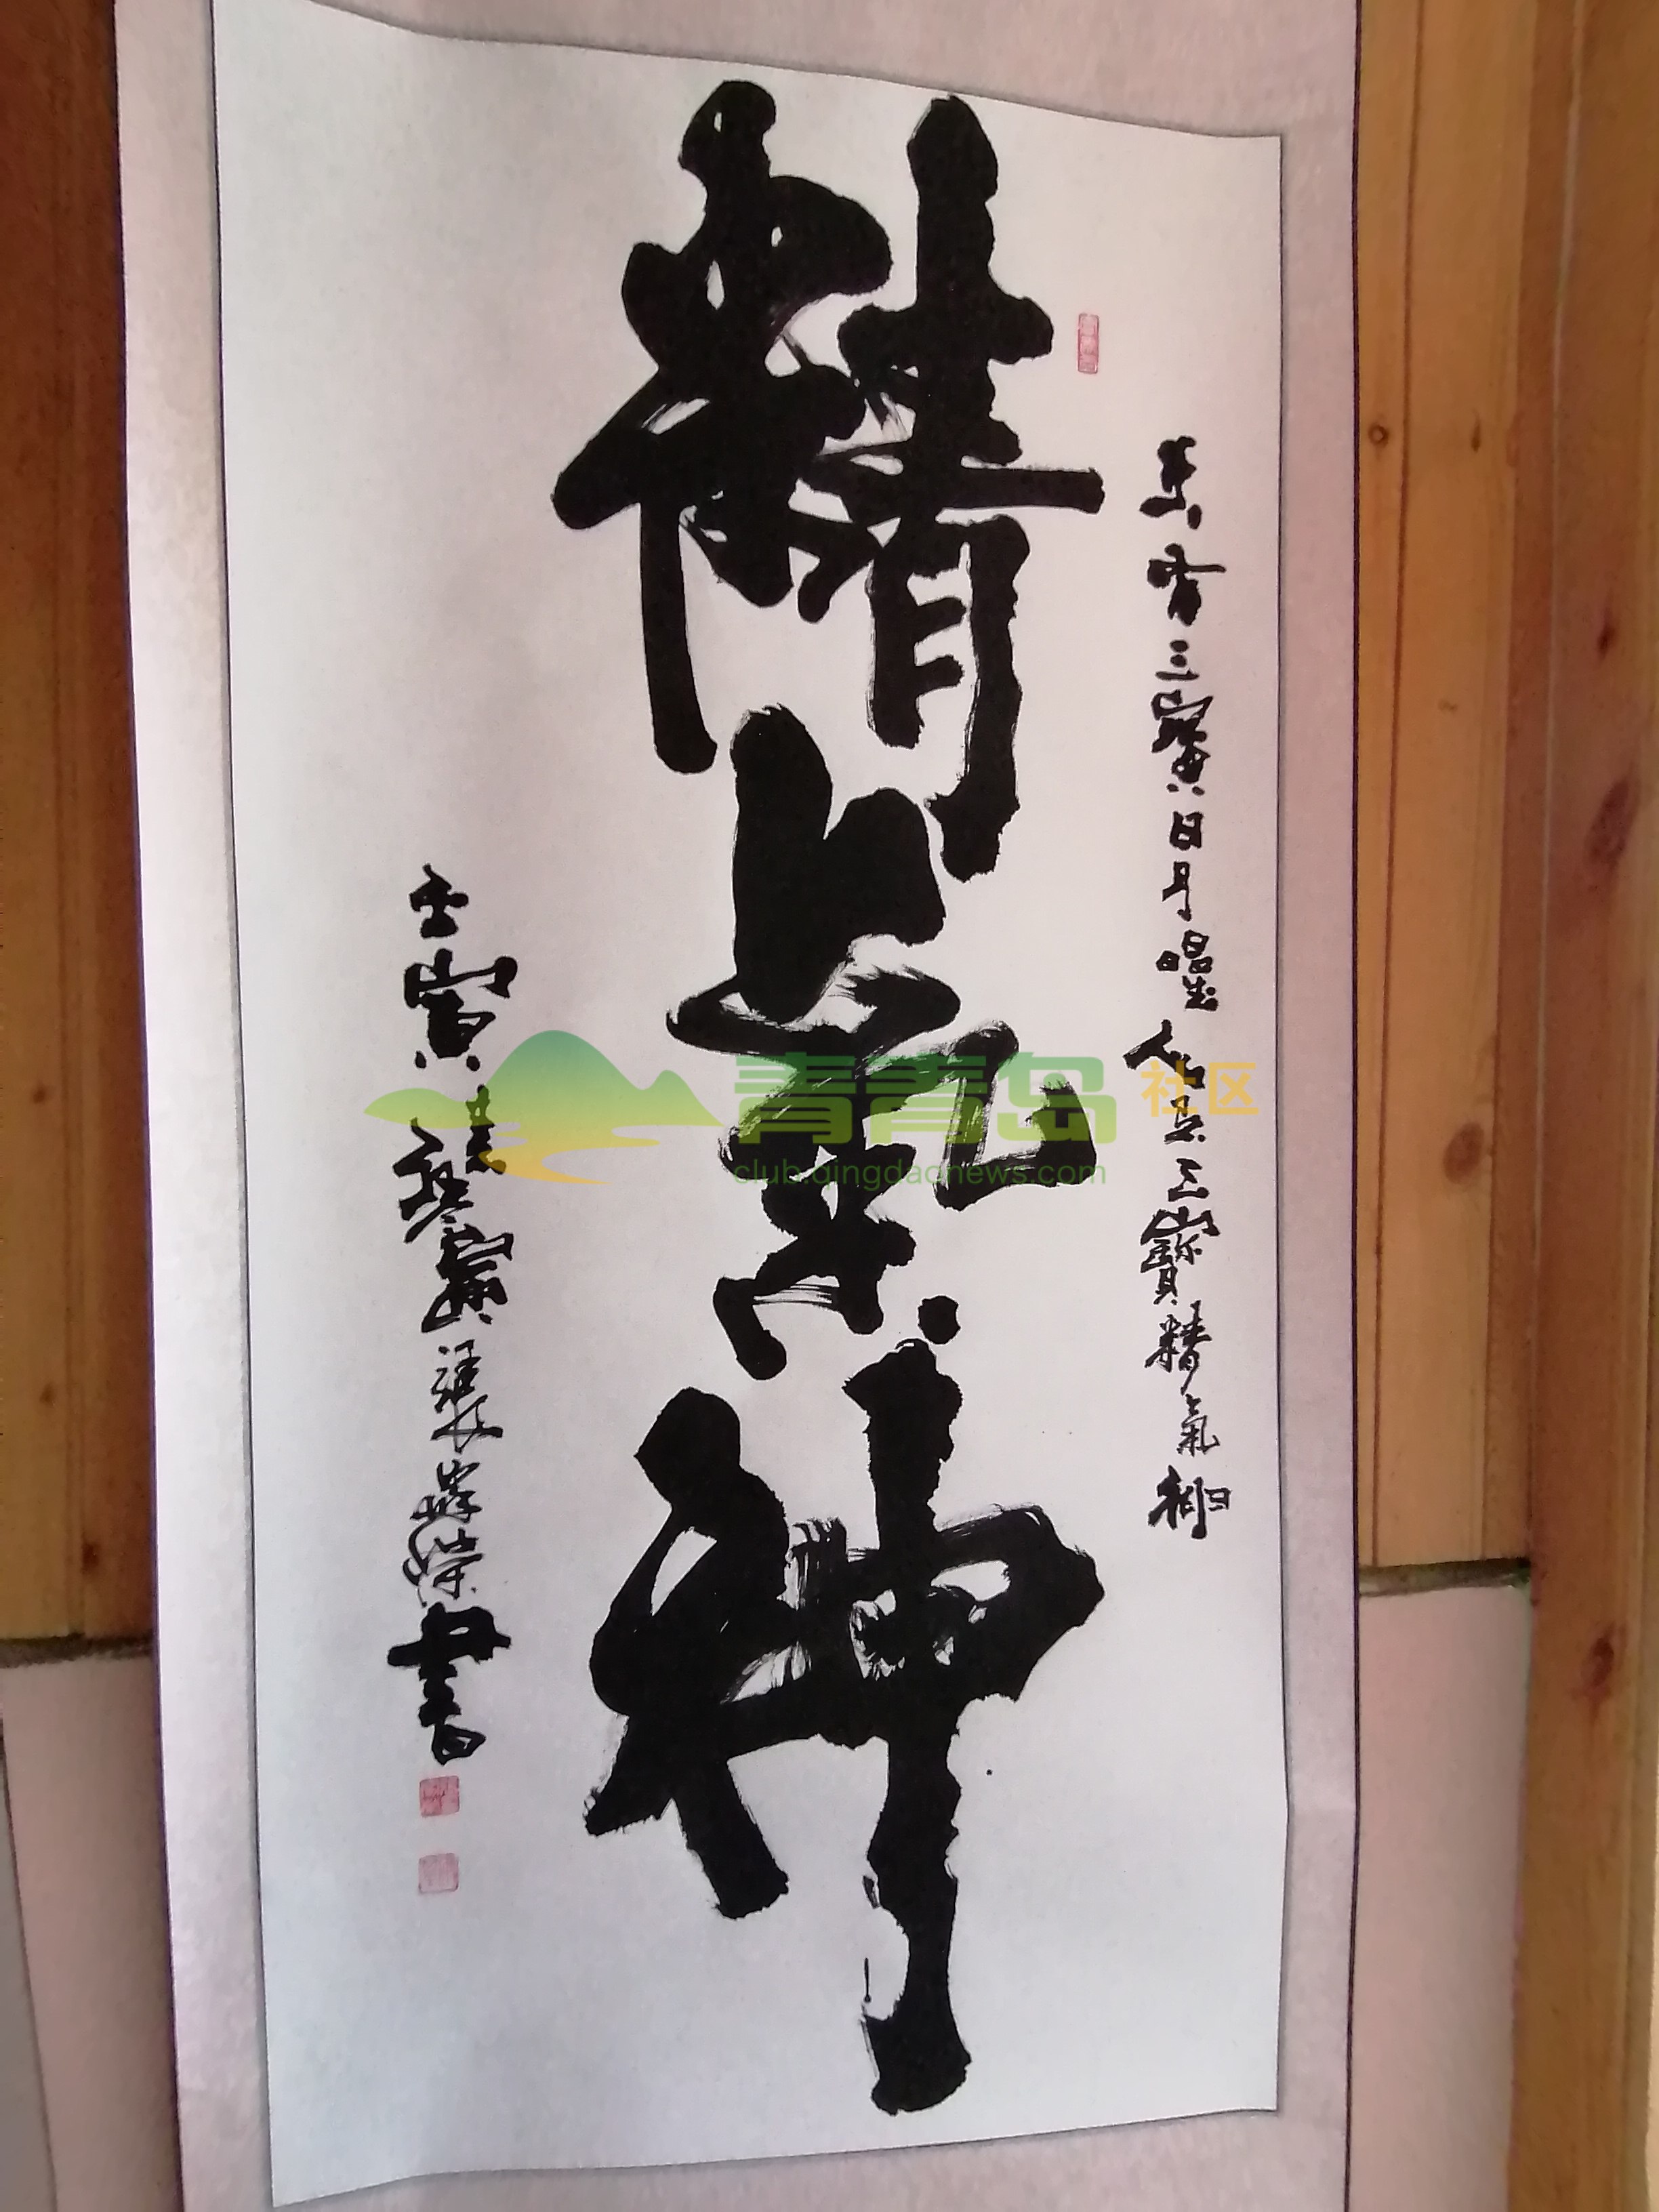 天有三寶日月星人有三寶精氣神
精氣神
壬寅
書
青青岛社区
club.qingdaonews.com